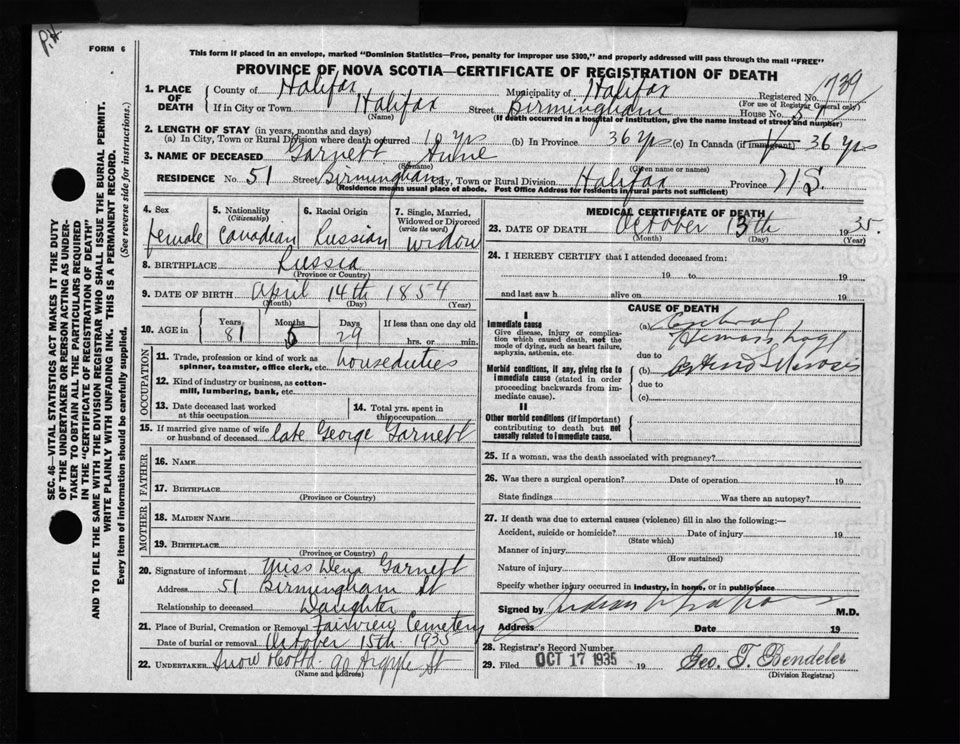 P.H
FORM 6
This form if placed in an envelope, marked "Dominion Statistics—Free, penalty for improper use $300," and properly addressed will pass through the mail "FREE"
PROVINCE OF NOVA SCOTIA—CERTIFICATE OF REGISTRATION OF DEATH
SEC. 46—VITAL STATISTICS ACT MAKES IT THE DUTY
OF THE UNDERTAKER OR PERSON ACTING AS UNDER-
TAKER TO OBTAIN ALL THE PARTICULARS REQUIRED
IN THE "CERTIFICATE OF REGISTRATION OF DEATH"
AND TO FILE THE SAME WITH THE DIVISION REGISTRAR WHO SHALL ISSUE THE BURIAL PERMIT.
WRITE PLAINLY WITH UNFADING INK. THIS IS A PERMANENT RECORD.
Every item of information should be carefully supplied. (See reverse side for instructions.)
1. PLACE OF DEATH County of Halifax Municipality of Halifax Registered No. 739
(For use of Registrar General only)
If in City or Town Halifax Street Birmingham House No.
(Name) (If death occurred in a hospital or institution, give the name instead of street and number)
2. LENGTH OF STAY (in years, months and days)
(a) In City, Town or Rural Division where death occurred 10 yrs (b) In Province 36 yrs (c) In Canada (if immigrant) 36 yrs
3. NAME OF DECEASED Garnett Anne
(Surname) (Given name or names)
RESIDENCE No. 51 Street Birmingham City, Town or Rural Division Halifax Province N.S.
(Residence means usual place of abode. Post Office Address for residents in rural parts not sufficient)
4. Sex female
5. Nationality (Citizenship) Canadian
6. Racial Origin Russian
7. Single, Married, Widowed or Divorced (write the word) Widow
8. BIRTHPLACE Russia
(Province or Country)
9. DATE OF BIRTH April 14th 1854
(Month) (Day) (Year)
10. AGE in Years 81 Months 5 Days 29 If less than one day old hrs. or min.
OCCUPATION
11. Trade, profession or kind of work as spinner, teamster, office clerk, etc. houseduties
12. Kind of industry or business, as cotton-mill, lumbering, bank, etc.
13. Date deceased last worked at this occupation
14. Total yrs. spent in this occupation
15. If married give name of wife or husband of deceased late George Garnett
FATHER
16. NAME
17. BIRTHPLACE
(Province or Country)
MOTHER
18. MAIDEN NAME
19. BIRTHPLACE
(Province or Country)
20. Signature of informant Miss Lena Garnett
Address 51 Birmingham St
Relationship to deceased Daughter
21. Place of Burial, Cremation or Removal Fairview Cemetery
Date of burial or removal October 15th 1935
22. UNDERTAKER Snow 90 Argyle St
(Name and address)
MEDICAL CERTIFICATE OF DEATH
23. DATE OF DEATH October 13th 1935.
(Month) (Day) (Year)
24. I HEREBY CERTIFY that I attended deceased from:
19 to 19
and last saw h alive on 19
CAUSE OF DEATH
I
Immediate cause
Give disease, injury or complication which caused death, not the mode of dying, such as heart failure, asphyxia, asthenia, etc.
(a) Cerebral Hemorrhage
due to
Morbid conditions, if any, giving rise to immediate cause (stated in order proceeding backwards from immediate cause).
(b) Arterio Sclerosis
due to
(c)
II
Other morbid conditions (if important) contributing to death but not causally related to immediate cause.
25. If a woman, was the death associated with pregnancy?
26. Was there a surgical operation? Date of operation 19
State findings Was there an autopsy?
27. If death was due to external causes (violence) fill in also the following:—
Accident, suicide or homicide? Date of injury 19
(State which)
Manner of injury
(How sustained)
Nature of injury
Specify whether injury occurred in industry, in home, or in public place
Signed by M.D.
Address Date 19
28. Registrar's Record Number
29. Filed OCT 17 1935 19 Geo. T. Bendeler
(Division Registrar)